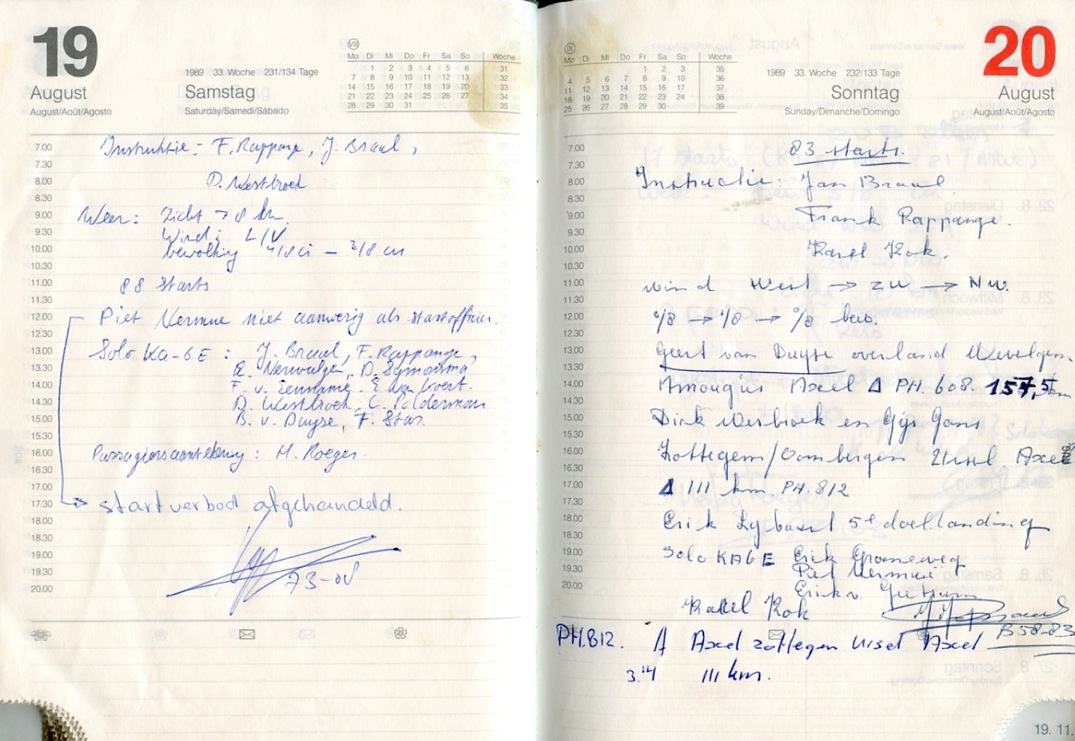 19
August
August/Août/Agosto
1989 33. Woche 231/134 Tage
Samstag
Saturday/Samedi/Sábado
Mo Di Mi Do Fr Sa So Woche
1 2 3 4 5 6 31
7 8 9 10 11 12 13 32
14 15 16 17 18 19 20 33
21 22 23 24 25 26 27 34
28 29 30 31 35
7.00
7.30
8.00
8.30
9.00
9.30
10.00
10.30
11.00
11.30
12.00
12.30
13.00
13.30
14.00
14.30
15.00
15.30
16.00
16.30
17.00
17.30
18.00
18.30
19.00
19.30
20.00
Instruktie: F. Rappange, J. Braal,
D. Westbroek
Weer: Zicht > 8 km
Wind: L/V
bewolking 4/8 ci – 3/8 cu
88 starts
Piet Vermue niet aanwezig als startofficier.
Solo Ka-6E: J. Braal, F. Rappange,
D. Symonsma
F. v.
D. Westbroek, C. Polderman
B. v. Duyse, F. Star.
Passagiersaantekening: M. Roeges
startverbod afgehandeld.
73-08
20
August
August/Août/Agosto
1989 33. Woche 232/133 Tage
Sonntag
Sunday/Dimanche/Domingo
Mo Di Mi Do Fr Sa So Woche
1 2 3 35
4 5 6 7 8 9 10 36
11 12 13 14 15 16 17 37
18 19 20 21 22 23 24 38
25 26 27 28 29 30 39
7.00
7.30
8.00
8.30
9.00
9.30
10.00
10.30
11.00
11.30
12.00
12.30
13.00
13.30
14.00
14.30
15.00
15.30
16.00
16.30
17.00
17.30
18.00
18.30
19.00
19.30
20.00
83 starts.
Instructie: Jan Braal.
Frank Rappange.
Karel Kok.
wind West → ZW → NW.
/8 → /8 → /8 bew.
Geert van Duyse overland Wevelgem
Amougis Axel Δ PH. 608. 157,5 km
Dirk Wesbroek en Gijs Gans
Zottegem/Oombergen Ursel Axel
Δ 111 km PH. 812
Erik Lybaert 5e doellanding
Solo KA6E Erik Groeneweg
Piet Vermue
Erik v.
Karel Kok
B58-83
PH.812. Δ Axel zottegem Ursel Axel
3.14 111 km.
19. 11.